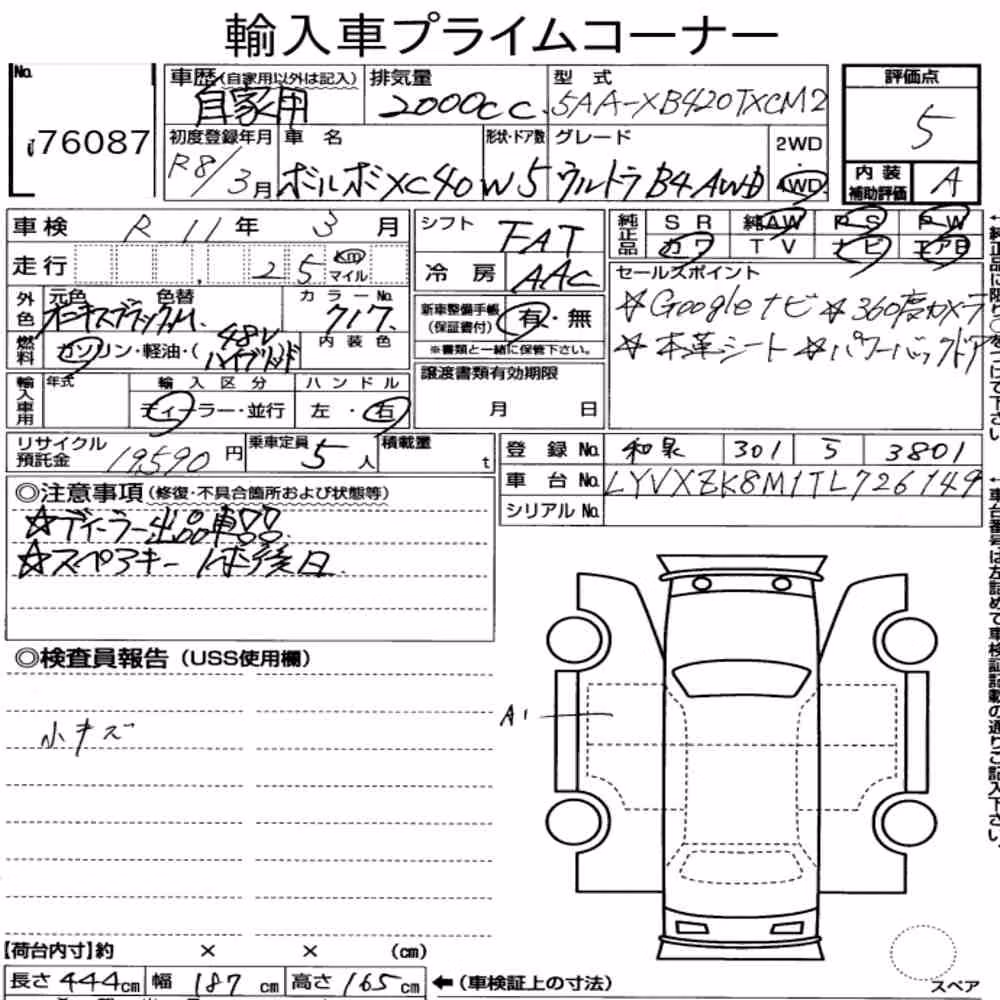 輸入車プライムコーナー
No. 76087
車歴(自家用以外は記入) 自家用
排気量 2000cc
型式 5AA-XB420TXCM2
評価点 5
初度登録年月 R8/3月
車名 ボルボXC40
形状・ドア数 W5
グレード ウルトラB4AWD
2WD・4WD
内装補助評価 A
車検 R11年3月
シフト FAT
純正品 SR 純AW PS PW
カワ TV ナビ エアB
走行 25 km マイル
冷房 AAC
セールスポイント
☆Googleナビ ☆360度カメラ
☆本革シート ☆パワーバックドア
外色 元色 色替 オニキスブラックM
カラーNo. 717
新車整備手帳(保証書付) 有・無
※書類と一緒に保管下さい。
燃料 ガソリン・軽油・( 48Vハイブリッド
内装色
輸入車用 年式 輸入区分 ディーラー・並行
ハンドル 左・右
譲渡書類有効期限
月 日
リサイクル預託金 19590円
乗車定員 5人
積載量 t
登録No. 和泉 301 ち 3801
車台No. LYVXZK8M1TL726149
シリアルNo.
◎注意事項(修復・不具合箇所および状態等)
☆ディーラー出品車!!
☆スペアキー 1本後日
◎検査員報告(USS使用欄)
小キズ
A1
【荷台内寸】約 × × (cm)
長さ444cm 幅187cm 高さ165cm ←(車検証上の寸法)
スペア
←純正品に限り○をつけて下さい。
←車台番号は左詰めで車検証記載の通りご記入下さい。